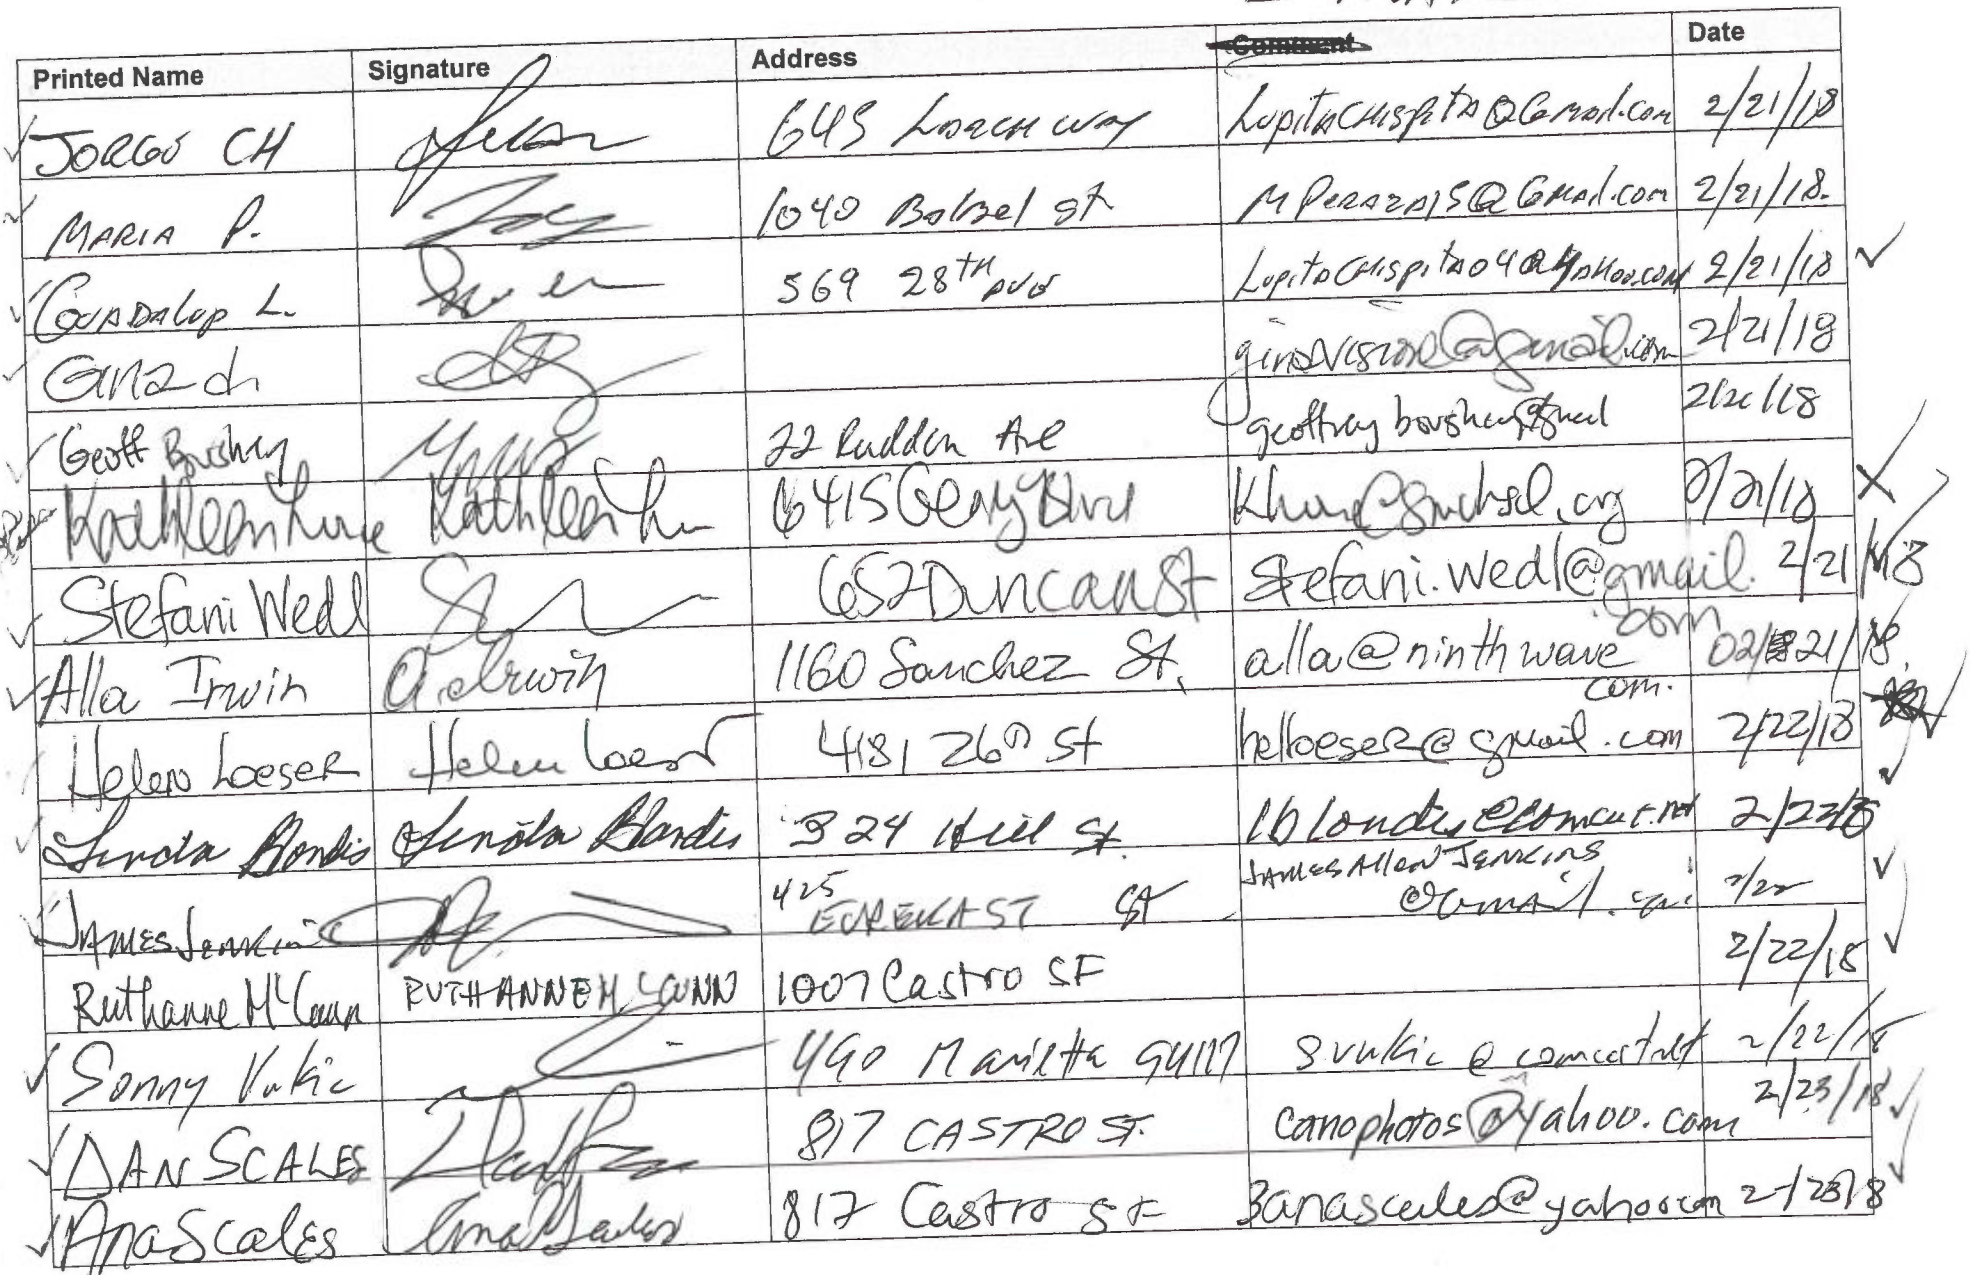 Printed Name Signature Address Comment Date
JORGÓ CH 645 way LupitaCHispitA@Gmail.com 2/21/18
MARIA P. 1040 st MPeraza15@Gmail.com 2/21/18.
GUADALUP L. 569 28TH AVE LupitaCHispita04@YAHOO.COM 2/21/18
Gina ch ginavision@gmail.com 2/21/18
Geoff 22 Ave 2/21/18
Kathleen Kathleen 6415 Geary Blvd 2/21/18
Stefani Wedl 652 Duncan St stefani.wedl@gmail. 2/21/18
com
Alla Irwin A. Irwin 1160 Sanchez St. alla@ninthwave 02/21/18.
com.
Helen Loeser Helen Loeser 4181 26th St helloeser@gmail.com 2/22/18
Linda Blondis Linda Blondis 324 Hill St. 2/22/18
James Jenkins 425 JAMESAllenJenkins 2/22
EUREKA ST St @Gmail.
Ruthanne McCunn RUTHANNE MCCUNN 1007 Castro SF 2/22/18
Sonny Vukic 490 Marietta svukic@comcast.net 2/22/18
DAN SCALES 817 CASTRO ST. canophotos@yahoo.com 2/23/18
Ana Scales Ana Scales 817 Castro SF 3anascales@yahoo.com 2/23/18